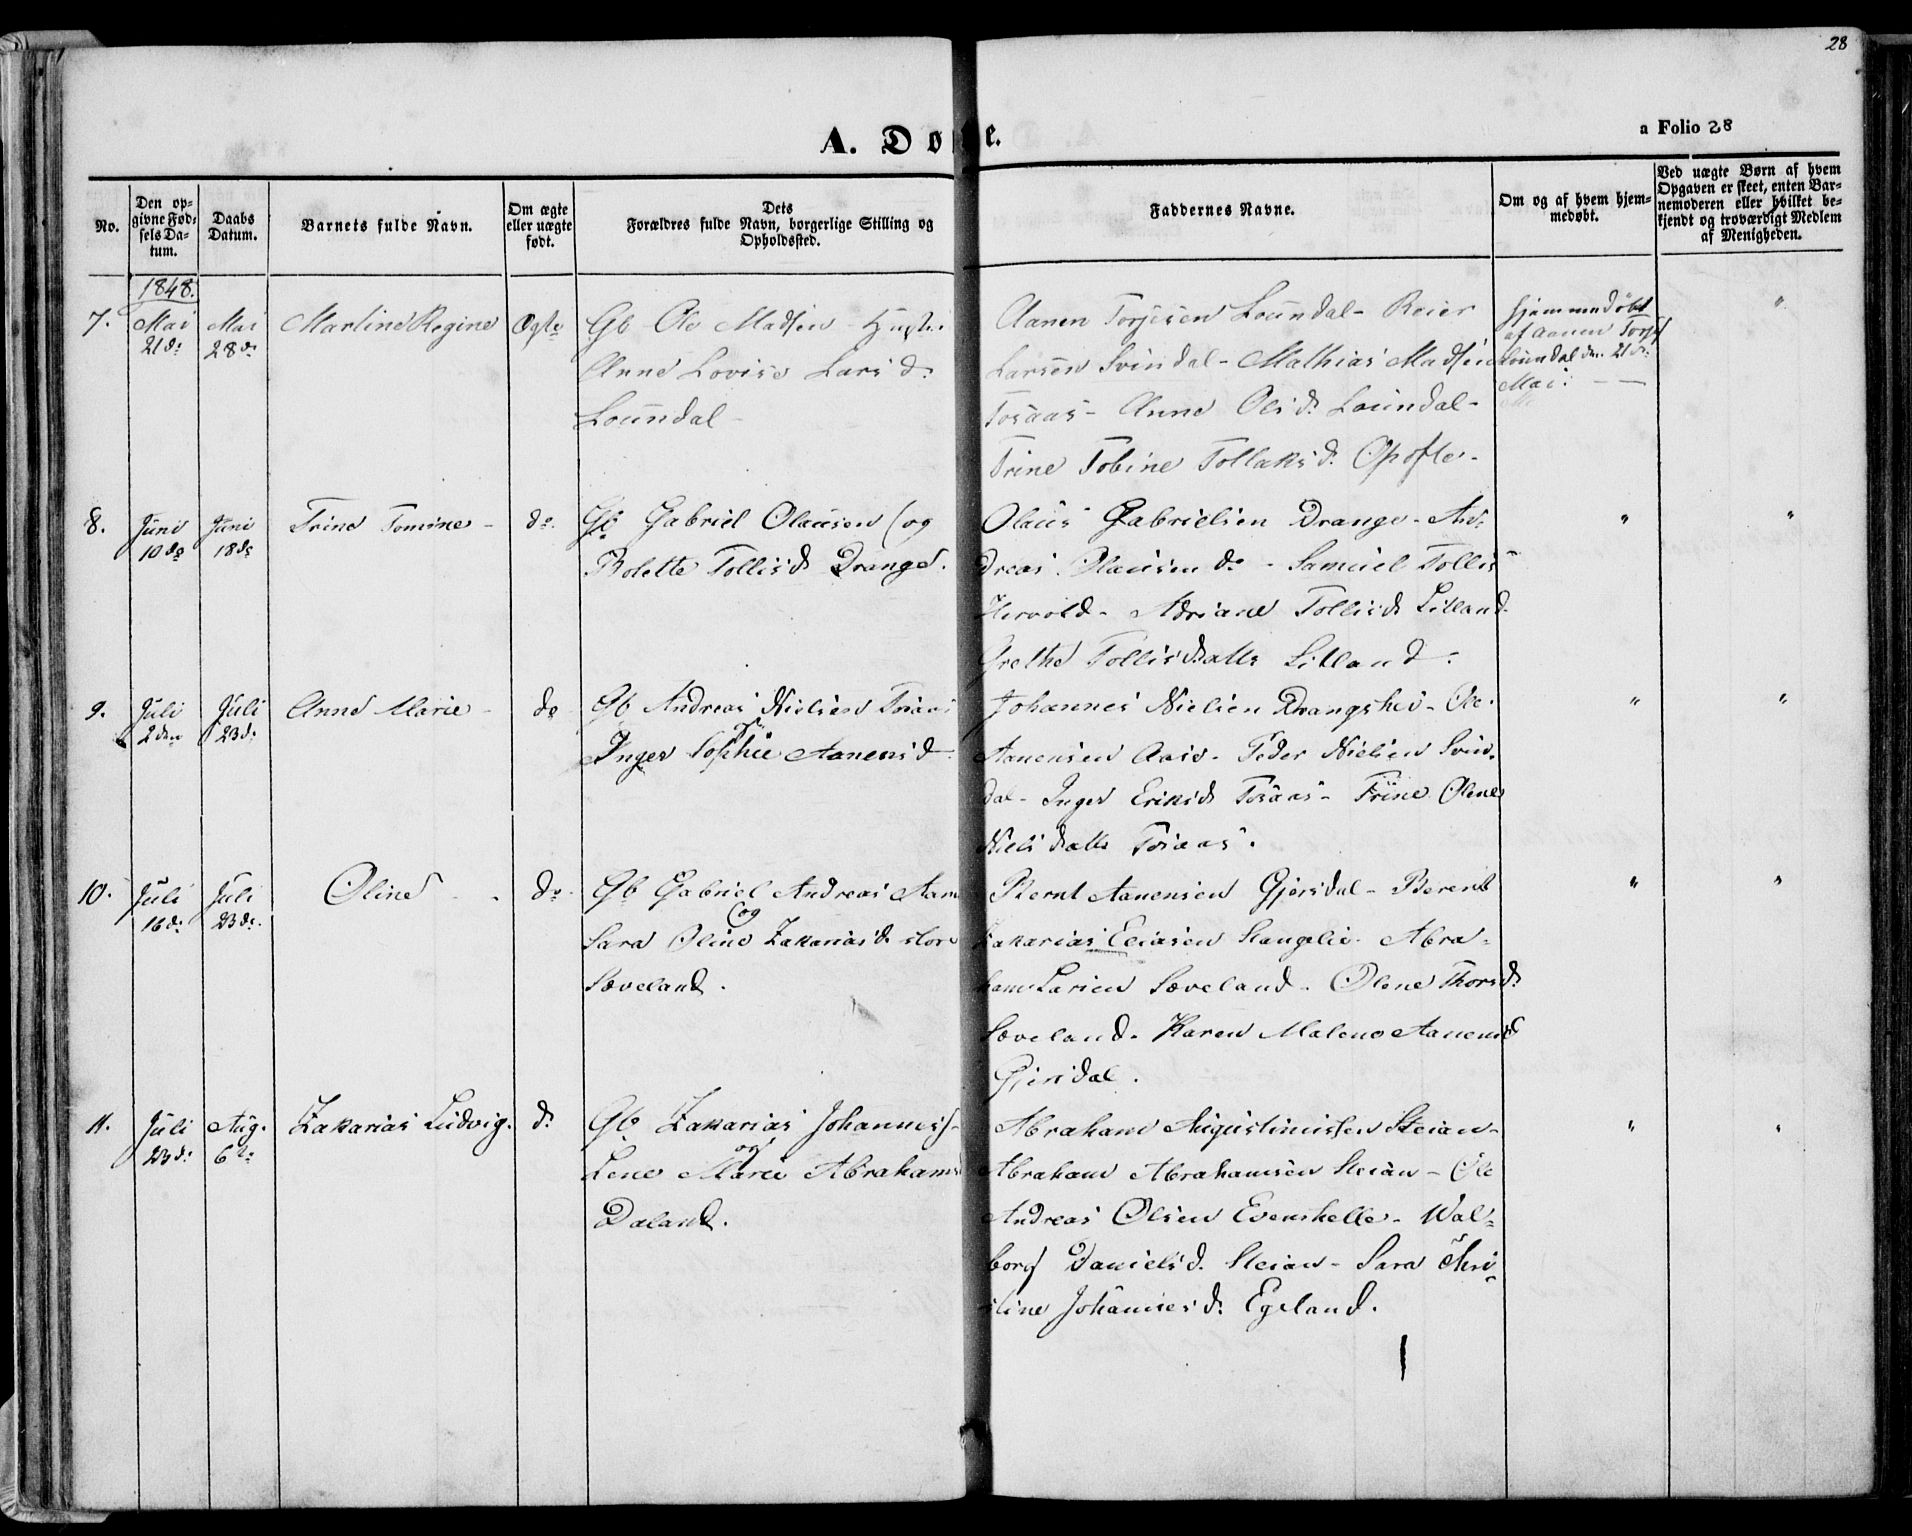 28
A. Døbte.
a Folio 28
No.
Den opgivne Fødselsdatum.
Daabs Datum.
Barnets fulde Navn.
Om ægte eller uægte født.
Dets Forældres fulde Navn, borgerlige Stilling og Opholdssted.
Faddernes Navne.
Om og af hvem hjemmedøbt.
Ved uægte Børn af hvem Opgaven er skeet, enten Barnemoderen eller hvilket bekjendt og troværdigt Medlem af Menigheden.
1848.
7. Mai Mai Martine Regine Ægte Gb Ole Madsen Hustr.
21de 28de Anne Lovise Larsd.
Loundal
Aanen Torjesen Loundal - Reier
Larsen Svindal - Mathias Madsen
Tosaas - Anne Olsd. Loundal -
Trine Tobine Tollaksd. Opofte -
hjemmedøbt
af Aanen Torjes
Loundal den 21de
Mai. "
8. Juni Juni Trine Tomine - do. Gb Gabriel Olausen (og
10de 18de Bolette Tollisd Drange.
Olaus Gabrielsen Drange - An-
dreas Olausen do - Samuel Tollis
Hervold - Adriane Tollisd Litland
Grethe Tollisdatter Litland. " "
9. Juli Juli Anne Marie - do Gb Andreas Nielsen Tosaas
2den 23de Inger Sophie Aanensd
Johannes Nielsen Drangshei - Ole
Aanensen Aase - Peder Nielsen Svin-
dal - Inger Eriksd Tosaas - Trine Olene
Nielsdatter Tosaas. " "
10. Juli Juli Oline - do Gb Gabriel Andreas Aan
16de 23de. (og
Sara Oline Zakariasd. store
Sæveland.
Bernt Aanensen Gjersdal - Berent
Zakarias Eliasen Stangelie - Abra-
ham Larsen Sæveland - Olene Thorsd.
Sæveland - Karen Malene Aanensd
Gjersdal. " "
11. Juli Aug. Zakarias Ludvig. do Gb Zakarias Johanness-
23de 6te og
Lene Marie Abrahamsd
Daland.
Abraham Augustinussen Steian -
Abraham Abrahamsen Steian - Ole
Andreas Olsen Evenshelle - Wal-
borg Danielsd. Steian - Sara Chri-
stine Johannesd. Egeland. " "